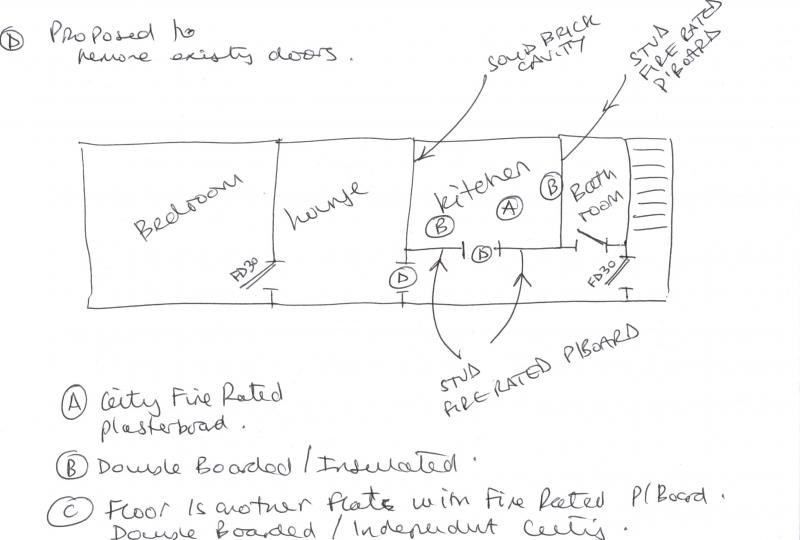 D Proposed to
remove existg doors.
SOLID BRICK
CAVITY
STUD
FIRE RATED
P'BOARD
Bedroom
lounge
kitchen
B
A
B
Bath
room
FD30
D
D
FD30
STUD
FIRE RATED P/BOARD
A Ceilg Fire Rated
plasterboard.
B Double Boarded / Insulated.
C Floor is another flat with Fire Rated P/Board.
Double Boarded / Independent Ceilig.